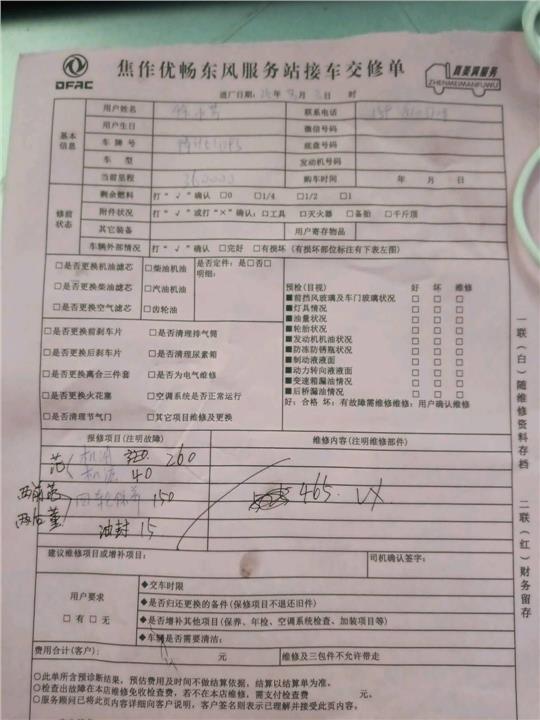 DFAC
焦作优畅东风服务站接车交修单
真美真服务
ZHENMEIMANFUWU
进厂日期: 年 月 日 时
基本信息
用户姓名 联系电话
用户生日 微信号码
车牌号 底盘号码
车型 发动机号码
当前里程 购车时间 年 月 日
修前状态
剩余燃料 打“√”确认 □0 □1/4 □1/2 □1
附件状况 打“√”或打“×”确认:□工具 □灭火器 □备胎 □千斤顶
其它装备 用户寄存物品
车辆外部情况 打“√”确认 □完好 □有损坏(有损坏部位标注有下表左图)
□是否更换机油滤芯 □柴油机油 是否定件:是□否□
明细:
□是否更换柴油滤芯 □汽油机油
□是否更换空气滤芯 □齿轮油
预检(目视) 好 坏 维修
■前挡风玻璃及车门玻璃状况 □ □ □
■灯具情况 □ □ □
■油量状况 □ □ □
■轮胎状况 □ □ □
■发动机机油状况 □ □ □
■防冻防锈瓶状况 □ □ □
■制动液液面 □ □ □
■动力转向液液面 □ □ □
■变速箱漏油情况 □ □ □
■后桥漏油情况 □ □ □
好:合格 坏:有故障需维修维修:用户确认维修
□是否更换前刹车片 □是否清理排气筒
□是否更换后刹车片 □是否清理尿素箱
□是否更换离合三件套 □是否为电气维修
□是否更换火花塞 □空调系统是否正常运行
□是否清理节气门 □其它项目维修及更换
报修项目(注明故障) 维修内容(注明维修部件)
机油 260
40
四轮保养 150
465.
油封 15
建议维修项目或增补项目: 司机确认签字:
用户要求
□有 □无
◆交车时限
◆是否归还更换的备件(保修项目不退还旧件)
◆是否增补其他项目(保养、年检、空调系统检查、加装项目等)
◆车辆是否需要清洁:
费用合计(客户): 元 维修及三包件不允许带走
○此单所含预诊断结果,预估费用及时间不做结算依据,结算以结算单为准。
○检查出故障在本店维修免收检查费,若不在本店维修,需支付检查费 元。
○服务顾问已将此页内容详细向客户说明,客户签名则表示已理解并接受此页内容。
一联(白)随维修资料存档
二联(红)财务留存